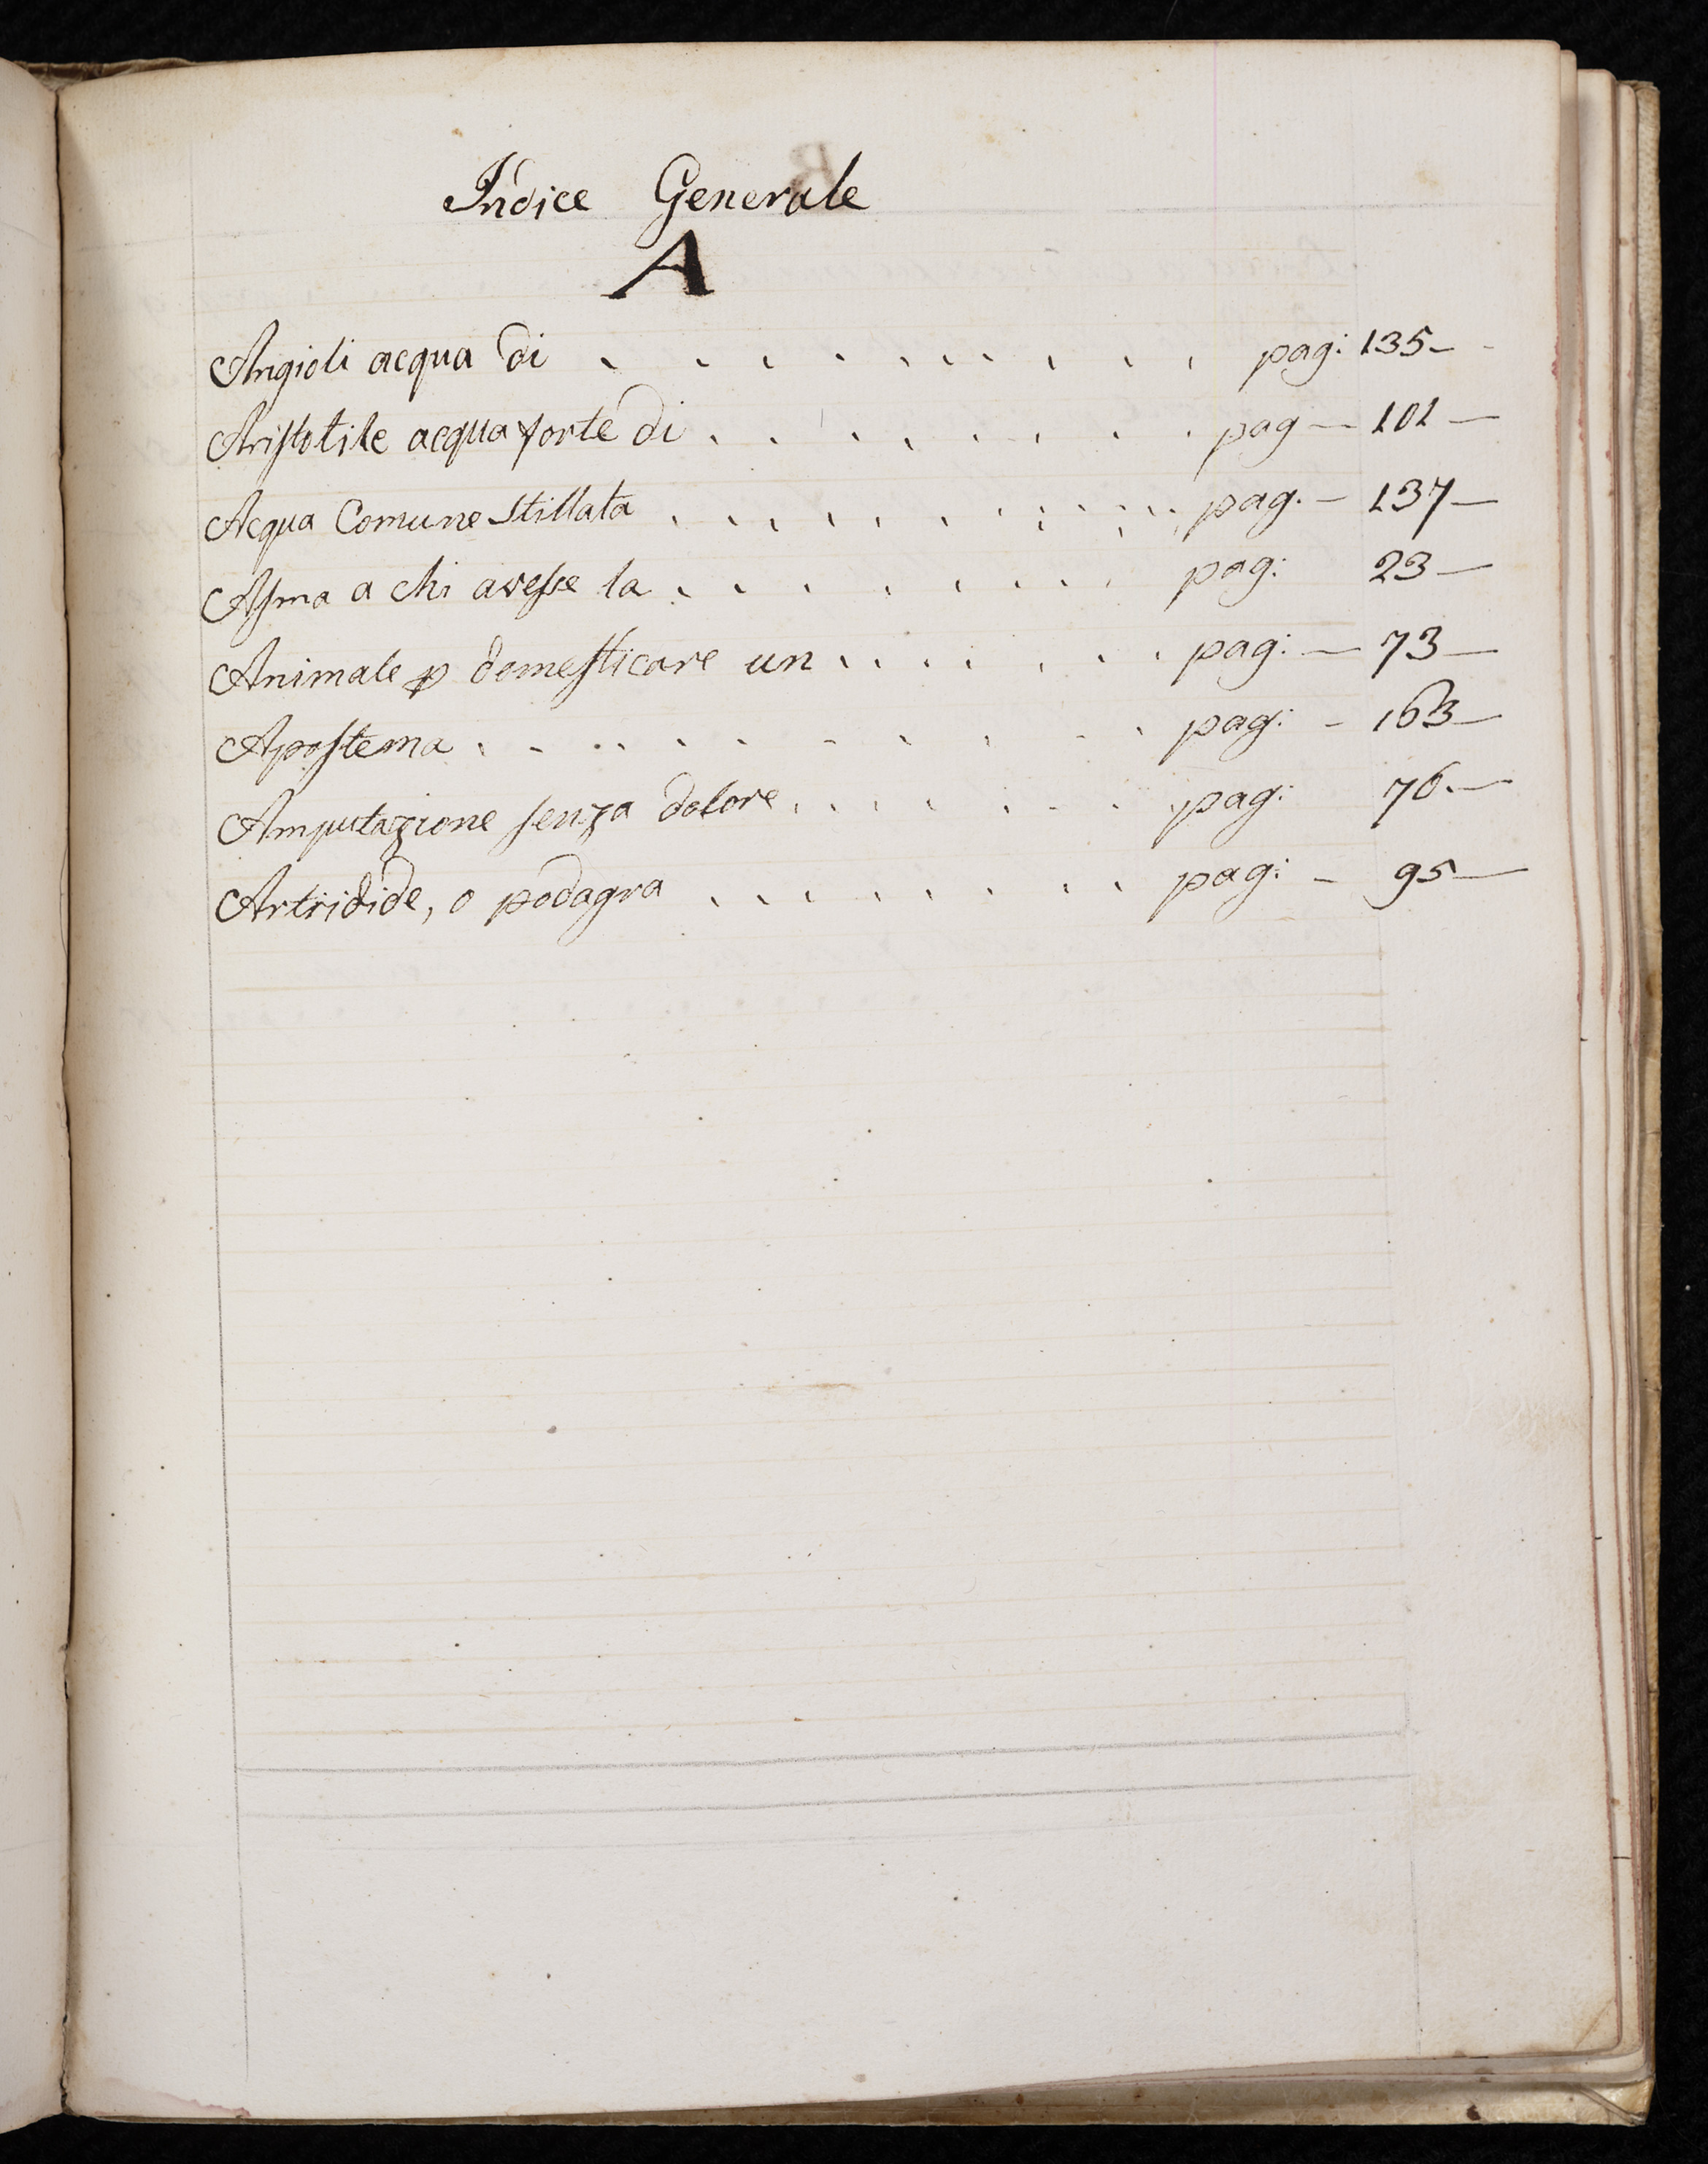 Indice Generale
A
Angioli acqua di . . . . . . . . . . . pag: 135-
Aristotile acqua forte di . . . . . . . . pag — 101 —
Acqua Comune Stillata . . . . . . . . . . . pag. — 137 —
Asma a chi avesse la . . . . . . . . pag: 23 —
Animale p domesticare un . . . . . . . pag: — 73 —
Apostema . . . . . . . . . . . pag: - 163 —
Amputazione senza dolore . . . . . . . . pag: 76. —
Artridide, o podagra . . . . . . . . pag: - 95 —